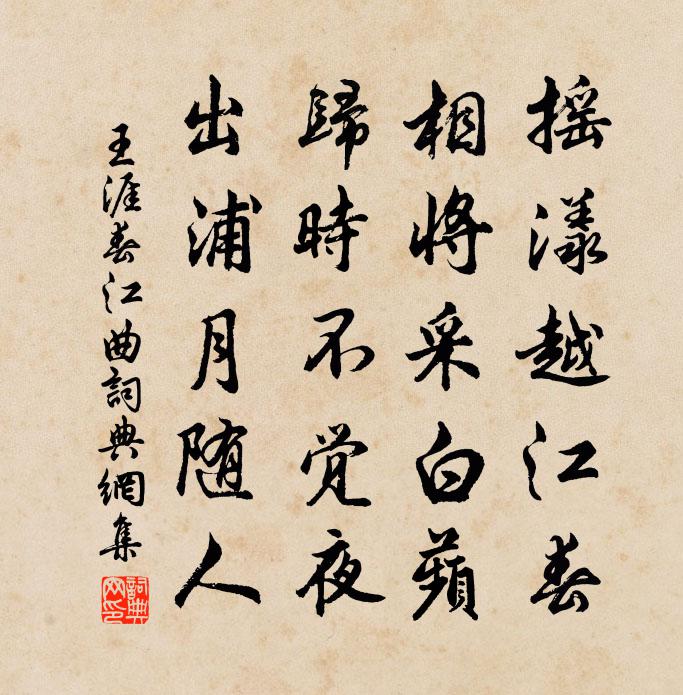 摇漾越江春
相將采白蘋
歸時不覚夜
出浦月随人
王涯春江曲詞典網集
詞典网印